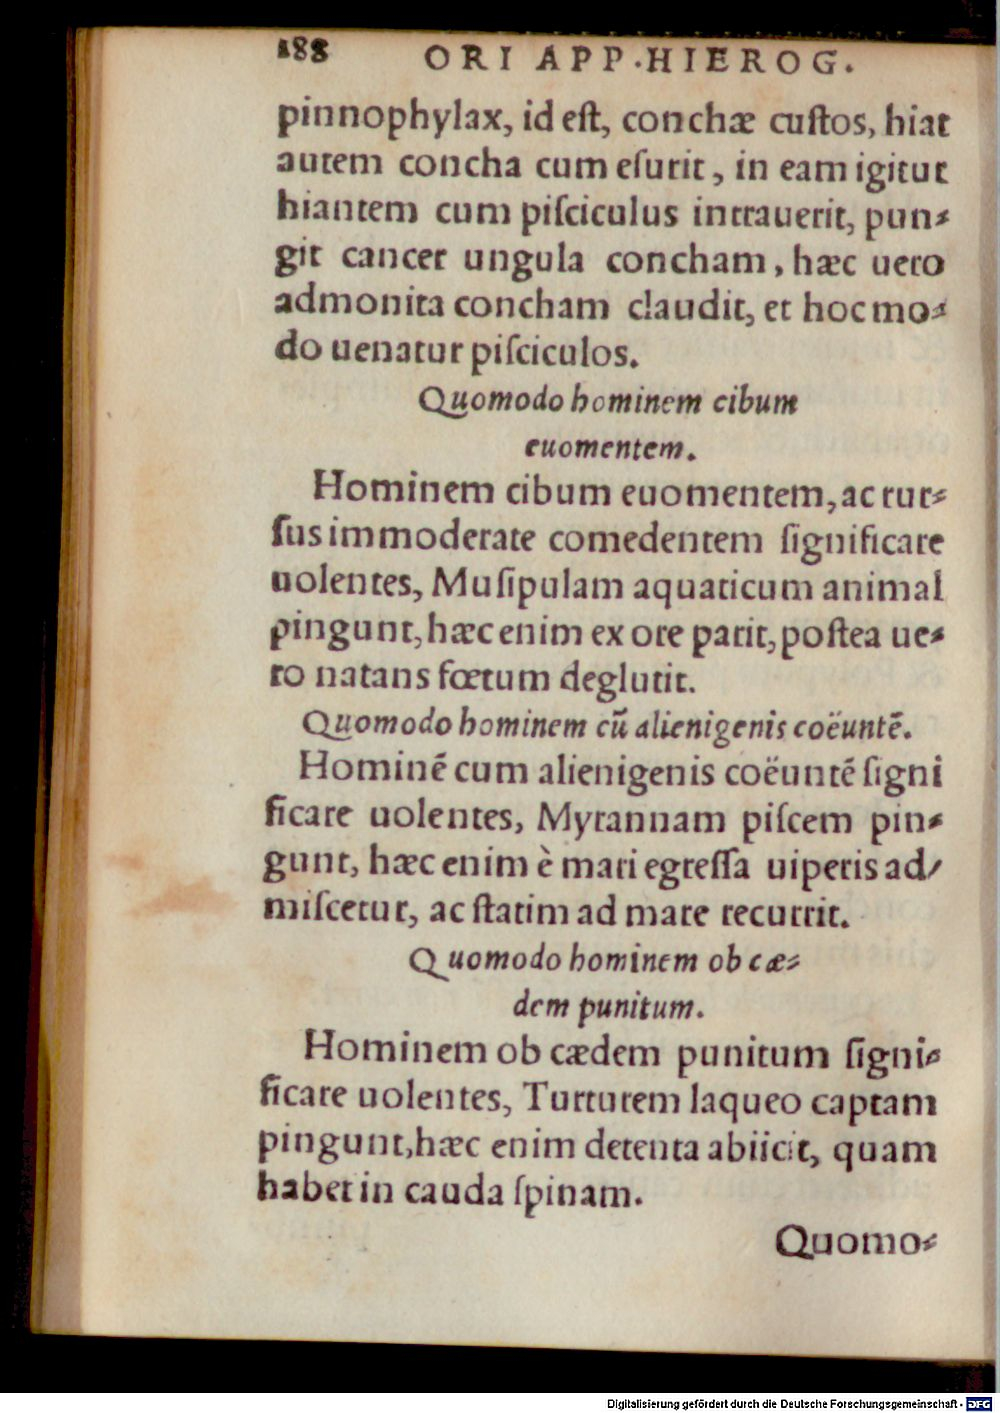 188 ORI APP.HIEROG.
pinnophylax, id eſt, conchæ cuſtos, hiat
autem concha cum eſurit, in eam igitur
hiantem cum piſciculus intrauerit, pun-
git cancer ungula concham, hæc uero
admonita concham claudit, et hoc mo-
do uenatur piſciculos.
Quomodo hominem cibum
euomentem.
Hominem cibum euomentem, ac rur-
ſus immoderate comedentem ſignificare
uolentes, Muſipulam aquaticum animal
pingunt, hæc enim ex ore parit, poſtea ue-
ro natans fœtum deglutit.
Quomodo hominem cū alienigenis coëuntē.
Hominē cum alienigenis coëuntē ſigni
ficare uolentes, Myrannam piſcem pin-
gunt, hæc enim è mari egreſſa uiperis ad/
miſcetur, ac ſtatim ad mare recurrit.
Quomodo hominem ob cæ-
dem punitum.
Hominem ob cædem punitum ſigni-
ficare uolentes, Turturem laqueo captam
pingunt, hæc enim detenta abiicit, quam
habet in cauda ſpinam.
Quomo-
Digitalisierung gefördert durch die Deutsche Forschungsgemeinschaft - DFG